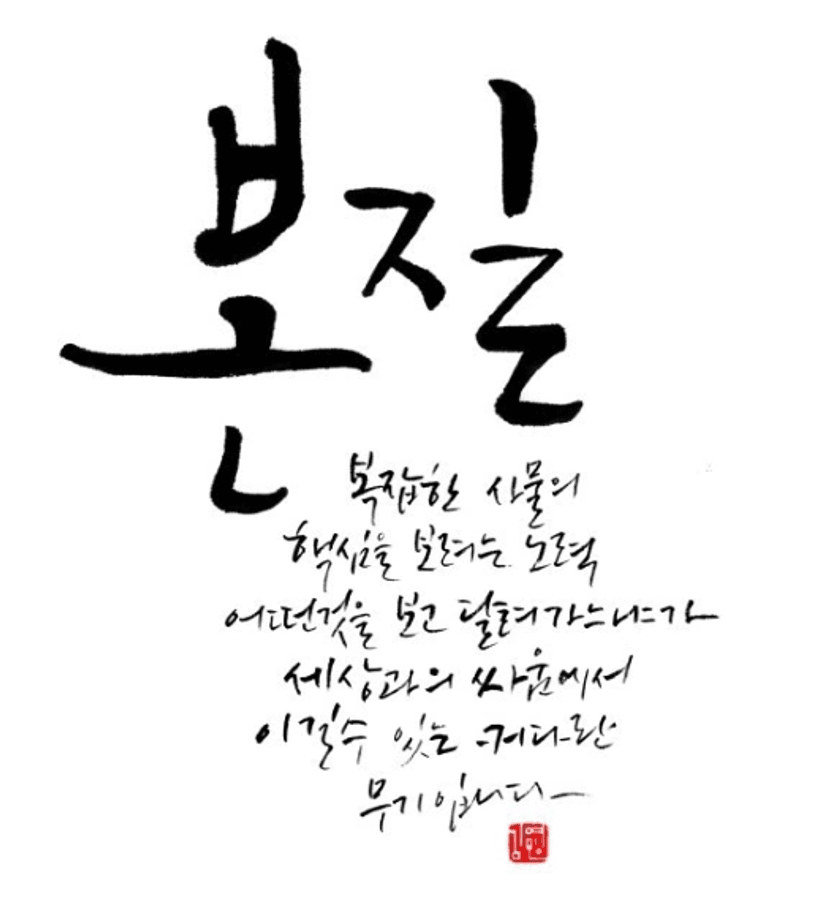 본질
복잡한 사물의
핵심을 보려는 노력
어떤것을 보고 달려가느냐가
세상과의 싸움에서
이길수 있는 커다란
무기입니다